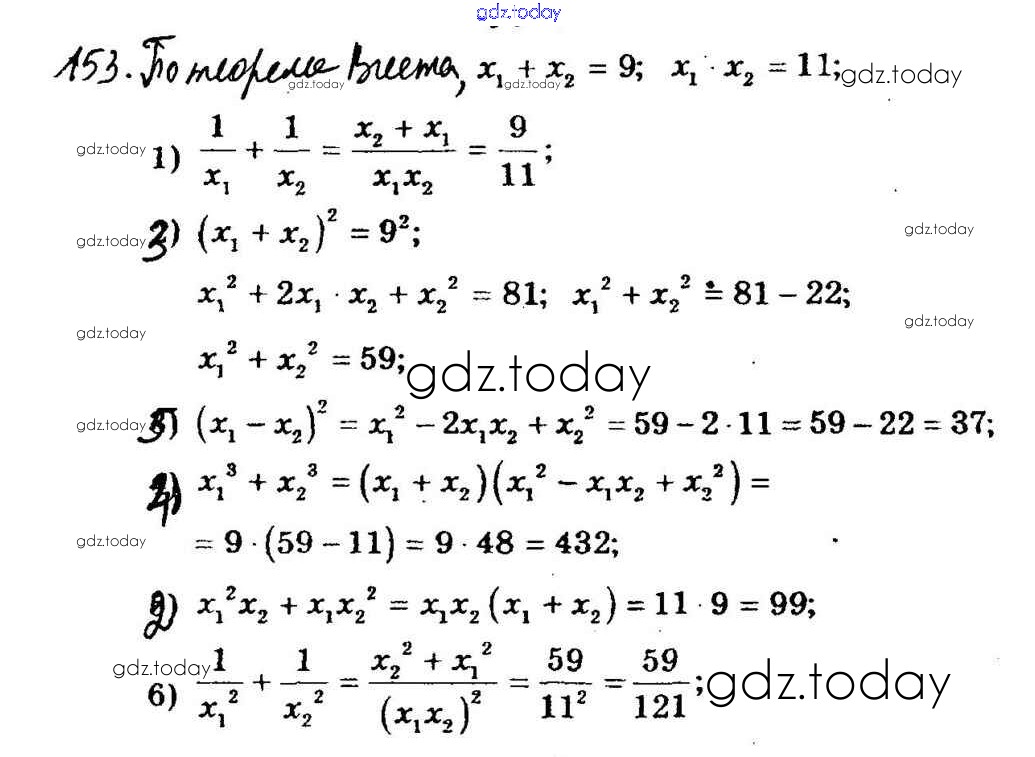 gdz.today
153. По теореме Виета, x₁ + x₂ = 9; x₁ · x₂ = 11; gdz.today
gdz.today gdz.today
gdz.today 1) 1/x₁ + 1/x₂ = (x₂ + x₁)/(x₁x₂) = 9/11;
gdz.today 3) (x₁ + x₂)² = 9²; gdz.today
x₁² + 2x₁ · x₂ + x₂² = 81; x₁² + x₂² = 81 − 22;
gdz.today gdz.today
x₁² + x₂² = 59; gdz.today
gdz.today 5) (x₁ − x₂)² = x₁² − 2x₁x₂ + x₂² = 59 − 2 · 11 = 59 − 22 = 37;
4) x₁³ + x₂³ = (x₁ + x₂)(x₁² − x₁x₂ + x₂²) =
gdz.today = 9 · (59 − 11) = 9 · 48 = 432;
2) x₁²x₂ + x₁x₂² = x₁x₂(x₁ + x₂) = 11 · 9 = 99;
gdz.today
6) 1/x₁² + 1/x₂² = (x₂² + x₁²)/(x₁x₂)² = 59/11² = 59/121; gdz.today